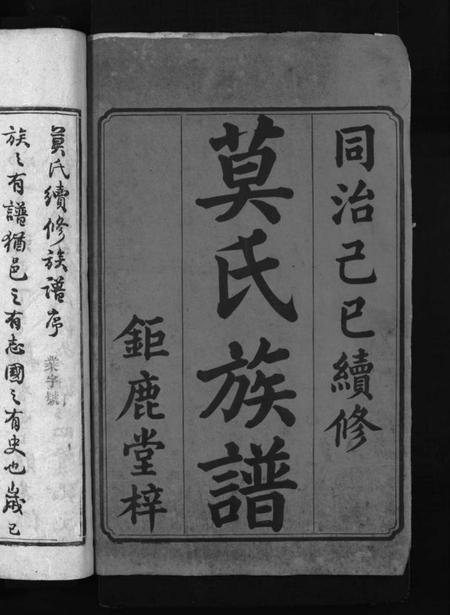 同治己巳續修
莫氏族譜
鉅鹿堂梓
莫氏續修族譜序
業字號
族之有譜猶邑之有志國之有史也歲己